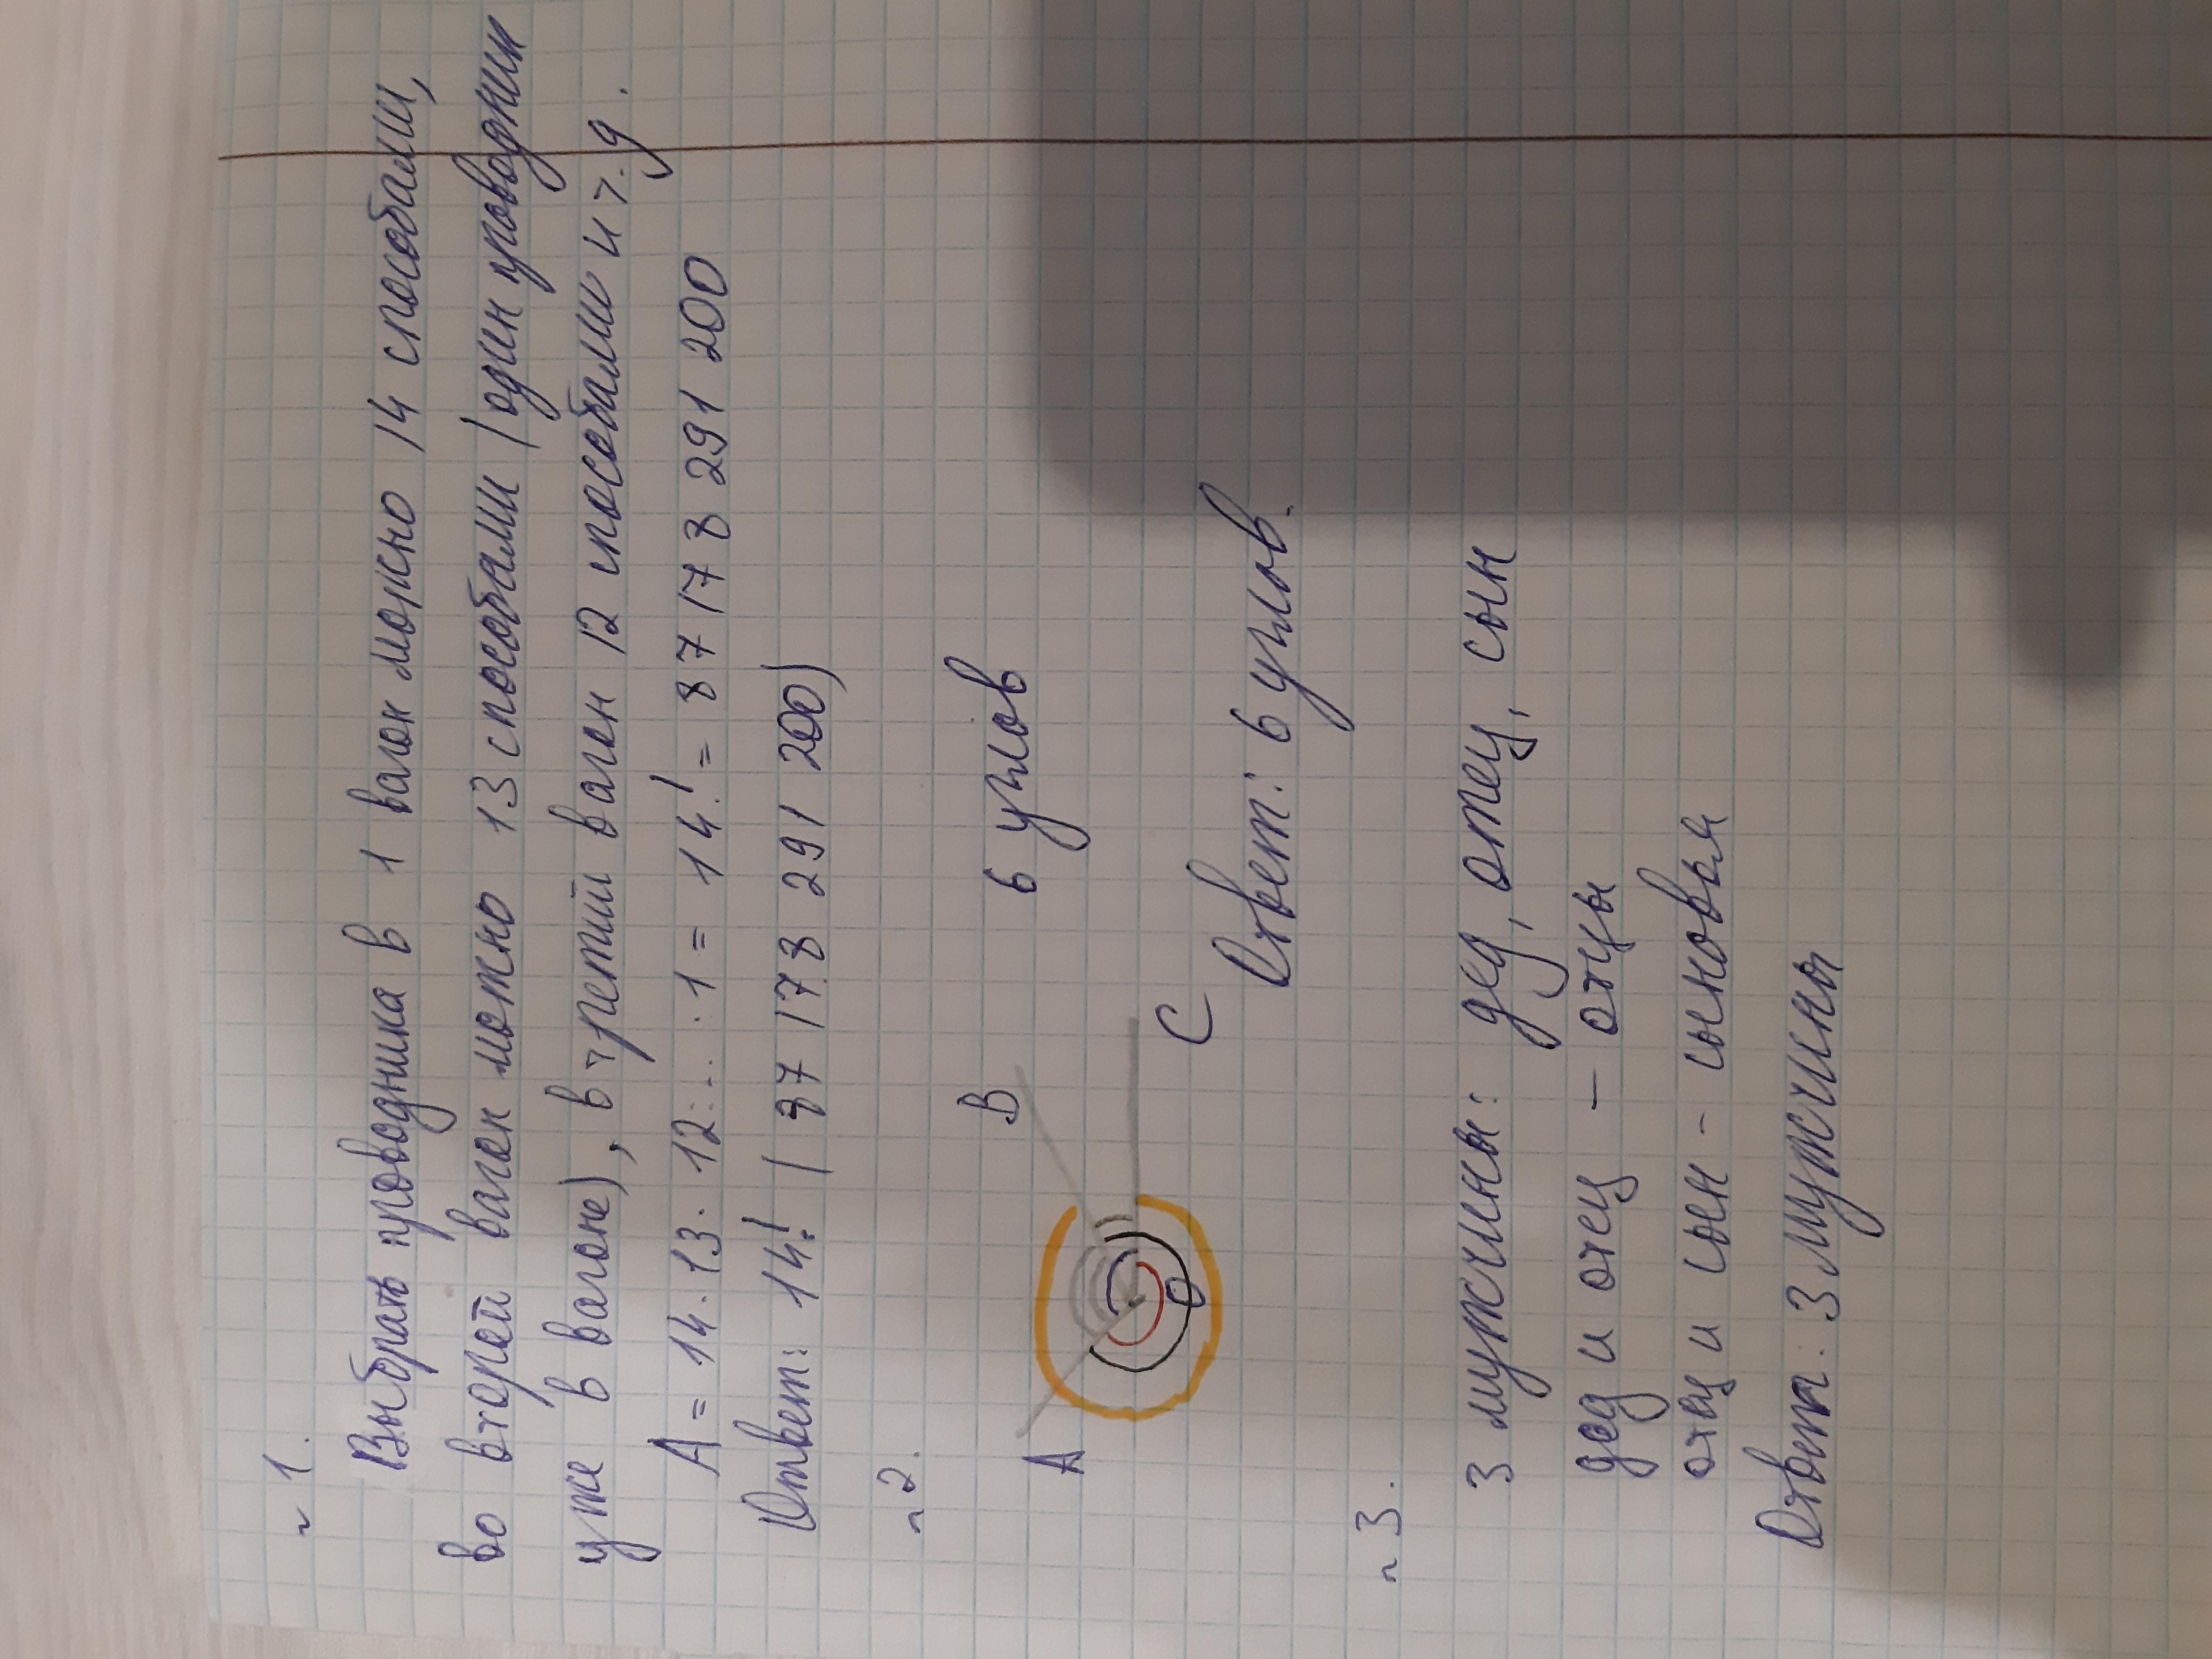 № 1.
Выбрать проводника в 1 вагон можно 14 способами,
во второй вагон можно 13 способами (один проводник
уже в вагоне), в третий вагон 12 способами и т.д.
A = 14 · 13 · 12 · ... · 1 = 14! = 87 178 291 200
Ответ: 14! (87 178 291 200)
№ 2.
A
B
C
O
6 углов
Ответ: 6 углов.
№ 3.
3 мужчины: дед, отец, сын
дед и отец - отцы
отец и сын - сыновья
Ответ: 3 мужчины